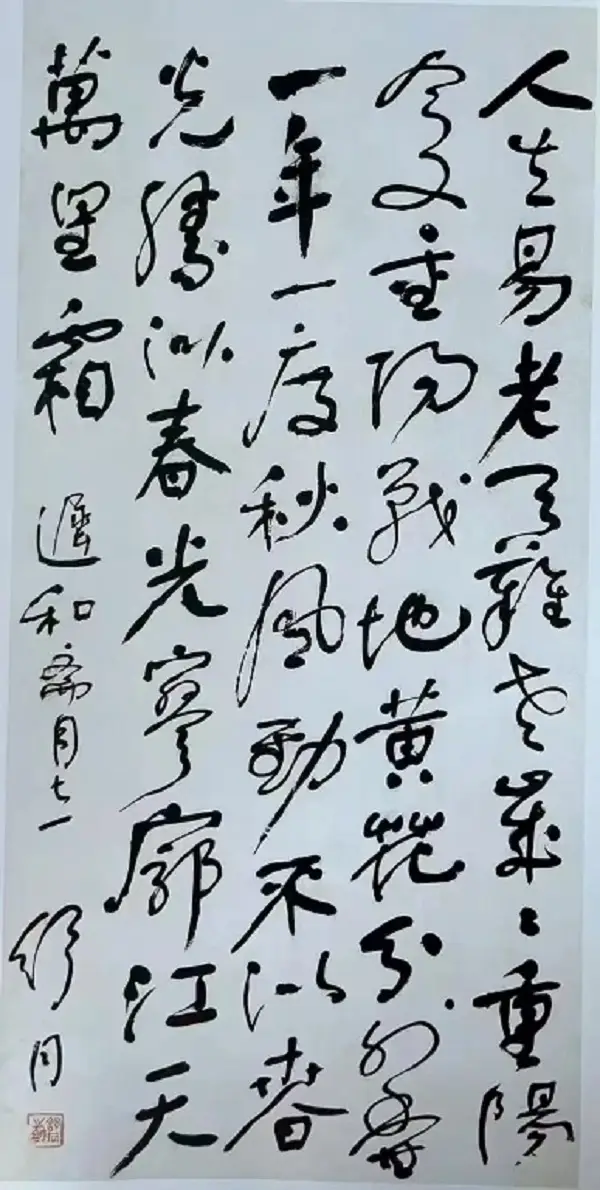 人生易老天難老歲〻重陽
今又重陽戰地黄花分外香
一年一度秋風勁不似春
光勝似春光寥廓江天
萬里霜 遲和齋同志 舒同